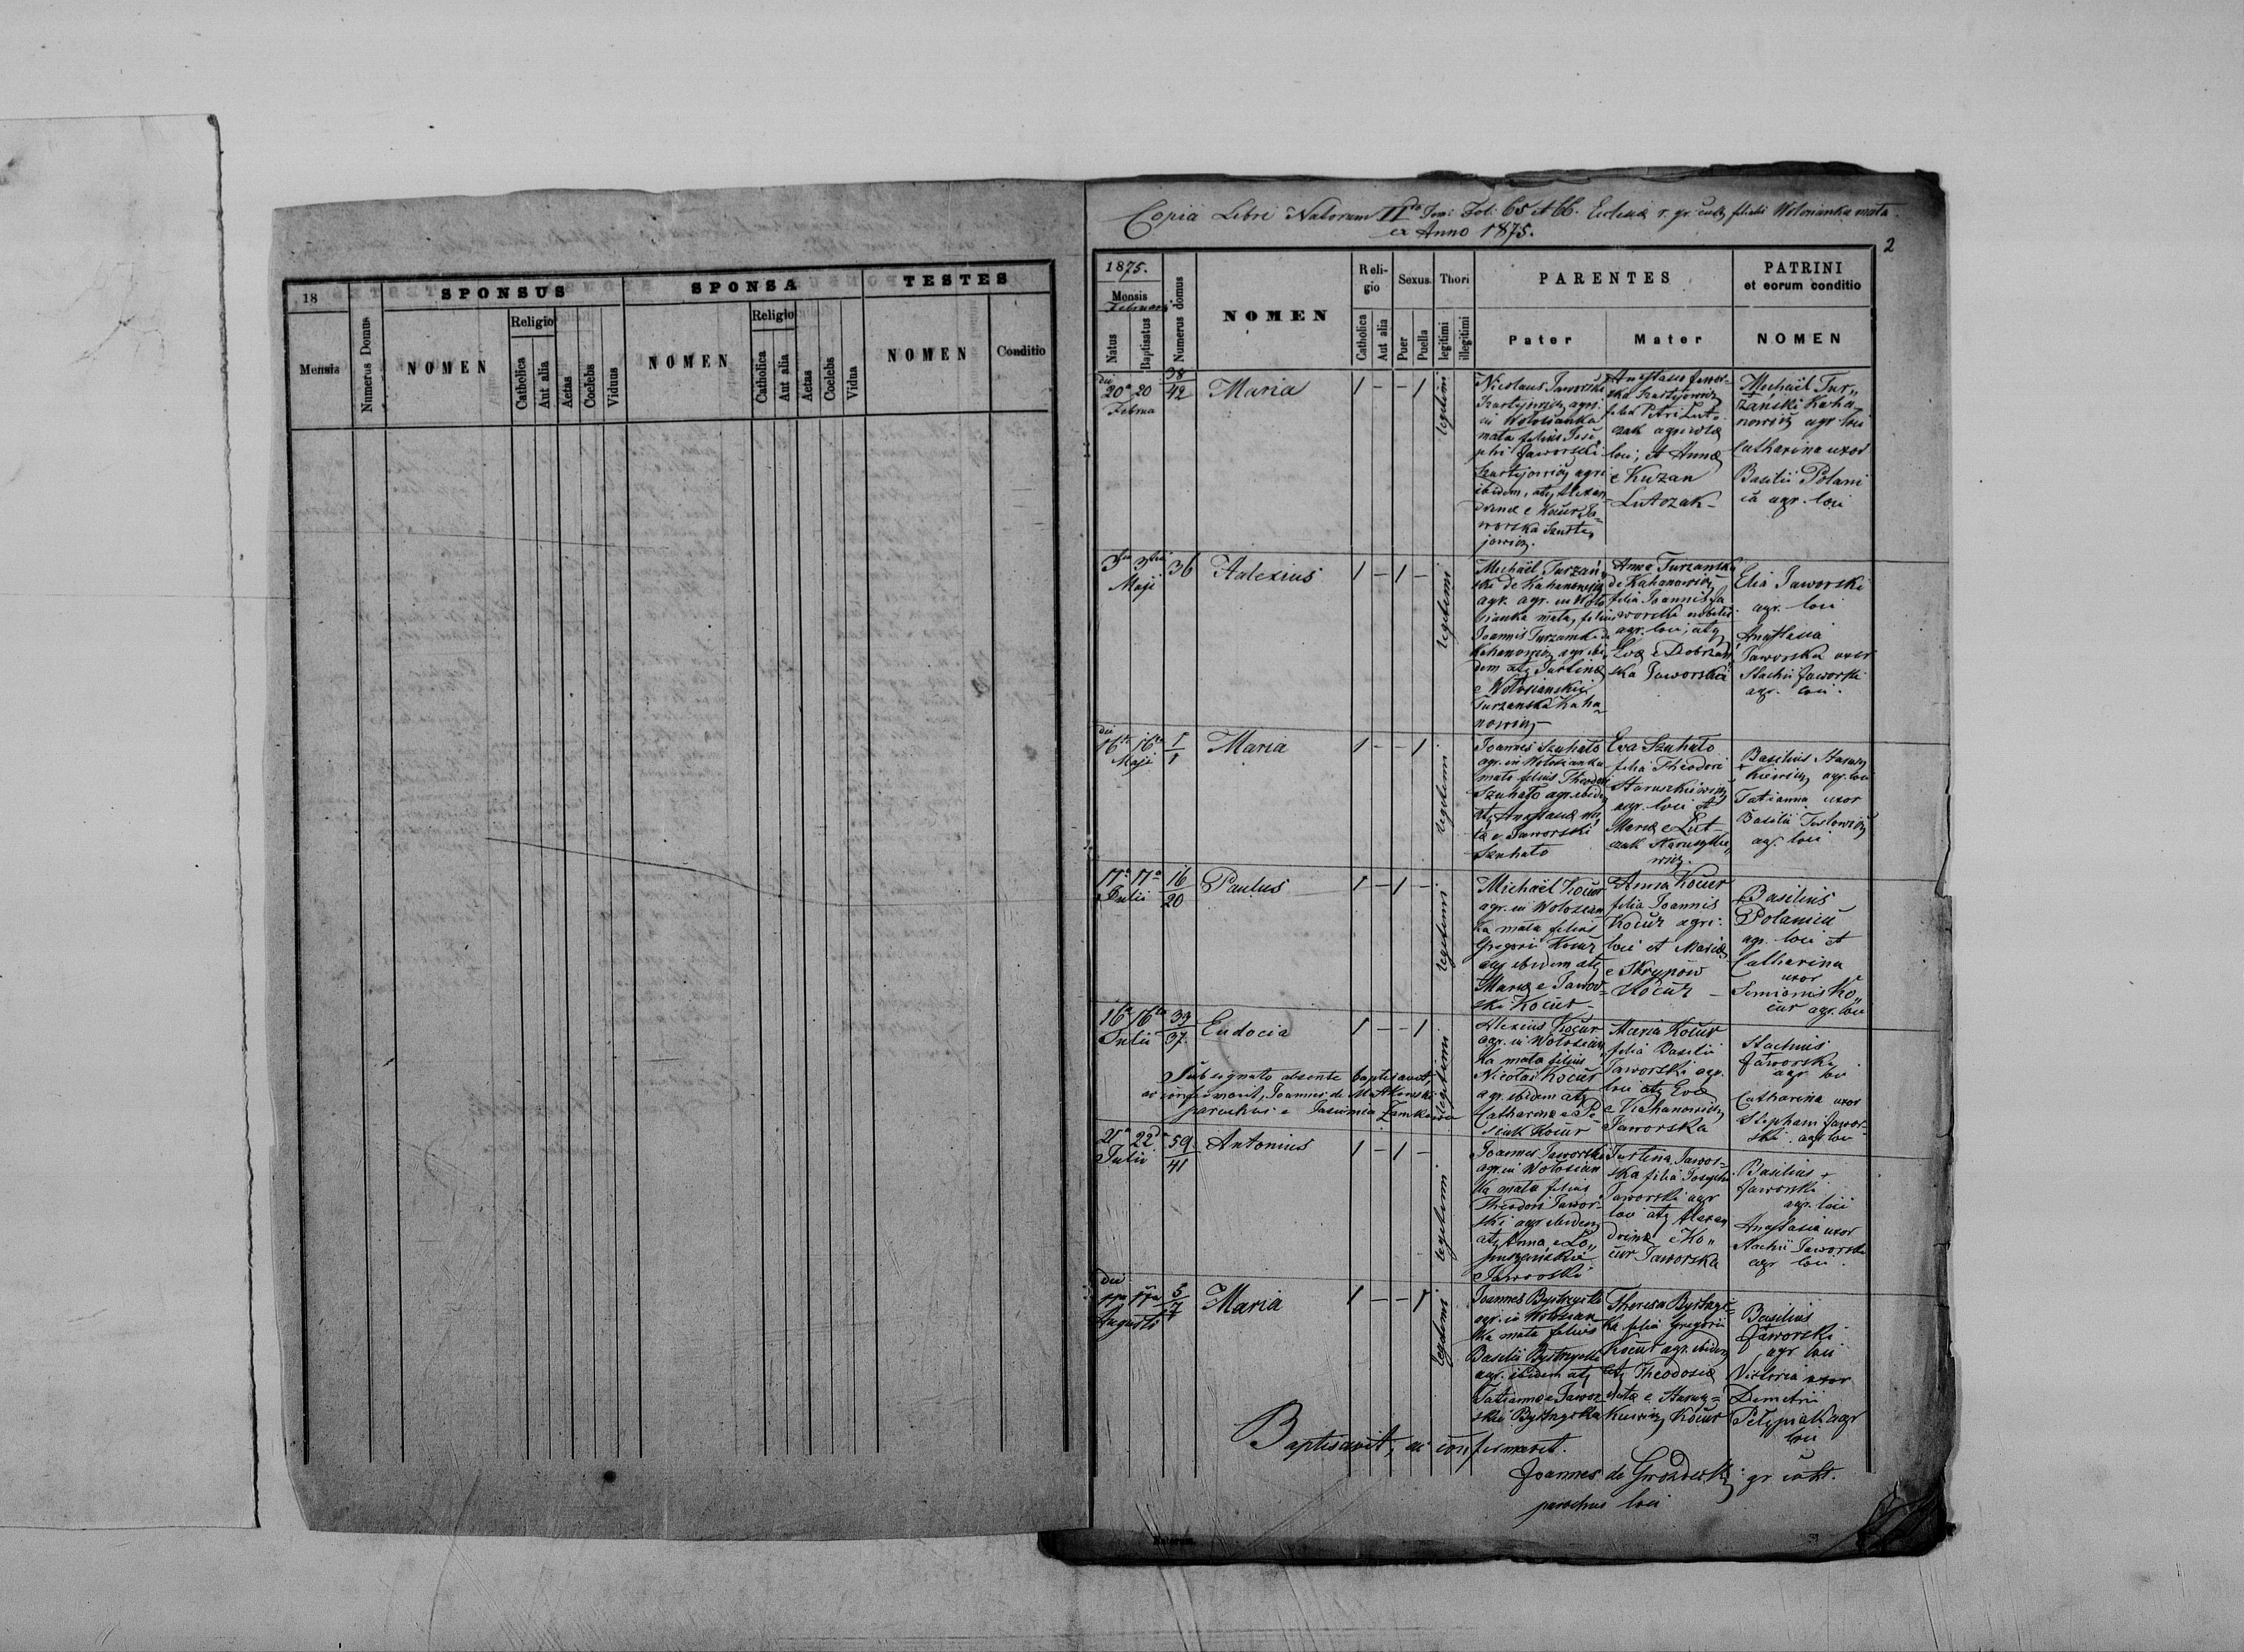 18
Mensis
Numerus Domus
SPONSUS
NOMEN
Religio
Catholica
Aut alia
Aetas
Coelebs
Viduus
SPONSA
NOMEN
Religio
Catholica
Aut alia
Aetas
Coelebs
Vidua
TESTES
NOMEN
Conditio
Copia Libri Natorum II Tomi Fol: 65 et 66. Ecclesiæ r. gr. cath. filialis Wołosianka mała
ex Anno 1875.
2
1875.
Mensis
Februarii
Natus
Baptisatus
Numerus domus
NOMEN
Religio
Catholica
Aut alia
Sexus.
Puer
Puella
Thori
legitimi
illegitimi
PARENTES
Pater
Mater
PATRINI
et eorum conditio
NOMEN
die
20a 20
Februa
38
42
Maria
1 - - 1
legitimi
Nicolaus Jaworski
agri.
in Wołosianka
mała filius Jose
phi Jaworski
agri
ibidem, atq Alexan
drinæ e Koćur Ja=
worska
jowicz.
Anastasia Jawor=
ska
filia Petri Lut=
czak agricolæ
loci, et Annæ
e Kuzan
Lutczak -
Michaël Tur„
żański Kaha
nowicz agr loci
Catharina uxor
Basilii Polani
ća agr. loci
3tia 3tia
Maji
36
Aalexius
1 - 1 -
legitimi
Michaël Turzań
ski de Kahanowicz
agr. in Woło
sianka mała, filius
Joannis Turzański de
Kahanowicz agr. ibi
dem atq Justinæ
e Wołosianskie
Turzanska Kaha
nowicz
Anna Turzanska
de Kahanowicz
filia Joannis Ja
worski nobilis
agr. loci, atq
Evæ e Dobrzań
ska Jaworska
Elia Jaworski
agr. loci
Anastasia
Jaworska uxor
Stachii Jaworski
agr. loci.
die
16ta 16ta
Maji
1
1
Maria
1 - - 1
legitimi
Joannes Szuhało
agr. in Wołosianka
mała filius Theodori
Szuhało agr. ibidem
atq Anastasiæ na
ta e Jaworski
Szuhało
Eva Szuhało
filia Theodori
Staruszkiewicz
agr. loci et
Mariæ e Lut=
czak Staruszkie„
wicz.
Basilius Starusz
kiewicz agr. loci
Tatianna uxor
Basilii
agr. loci
17a 17a
Julii
16
20
Paulus
1 - 1 -
legitimi
Michaël Koćur
agr. in Wołosian
ka mała filius
Gregorii Koćur
agr ibidem atq
Mariæ e Jawor=
ski Koćur -
Anna Koćur
filia Joannis
Koćur agri:
loci et Mariæ
e Skrypów
Koćur -
Basilius
Polanića
agr. loci et
Catharina
uxor
Simionis Ko„
ćur agr. loci
16ta 16ta
Julii
33
37
Eudocia
1 - - 1
legitimi
Subsignato absente baptisavit,
ac confirmavit, Joannes de
parochus e Jasionka Zamkowa
Alexius Koćur
agr. in Wołosian
ka mała filius
Nicolai Koćur
agr. ibidem atq
Catharinæ e Pe
siak Koćur
Maria Koćur
filia Basilii
Jaworski agr.
loci atq Evæ
e Kahanowicz
Jaworska
Stachius
Jaworski
agr loci
Catharina uxor
Stephani Jawor
ski agr loci
21a 22da
Julii
59
41
Antonius
1 - 1 -
legitimi
Joannes Jaworski
agr. in Wołosian
ka mała filius
Theodori Jawor=
ski agr ibidem
atq Anna e Ło„
puszańskie
Jaworski
Justina Jawor=
ska filia Josephi
Jaworski agr
loci atq Alexan
drinæ e Ko„
ćur Jaworska
Basilius +
Jaworski
agr. loci
Anastasia uxor
Stachii Jaworski
agr loci.
die
Augusti
5
7
Maria
1 - - 1
legitimi
Joannes Bystrycki
agr. in Wołosian
ka mała filius
Basilii Bystrycki
agr. ibidem atq
Tatiannæ e Jawor
skie Bystrycka
Theresa Bystryc=
ka filia Gregorii
Koćur agr. ibidem
atq Theodosiæ
natæ e Starusz=
kiewicz Koćur
Basilius
Jaworski
agr loci
Victoria uxor
Demetrii
agr
loci
Baptisavit, ac confirmavit.
Joannes de Gwozdecki gr. cath.
parochus loci